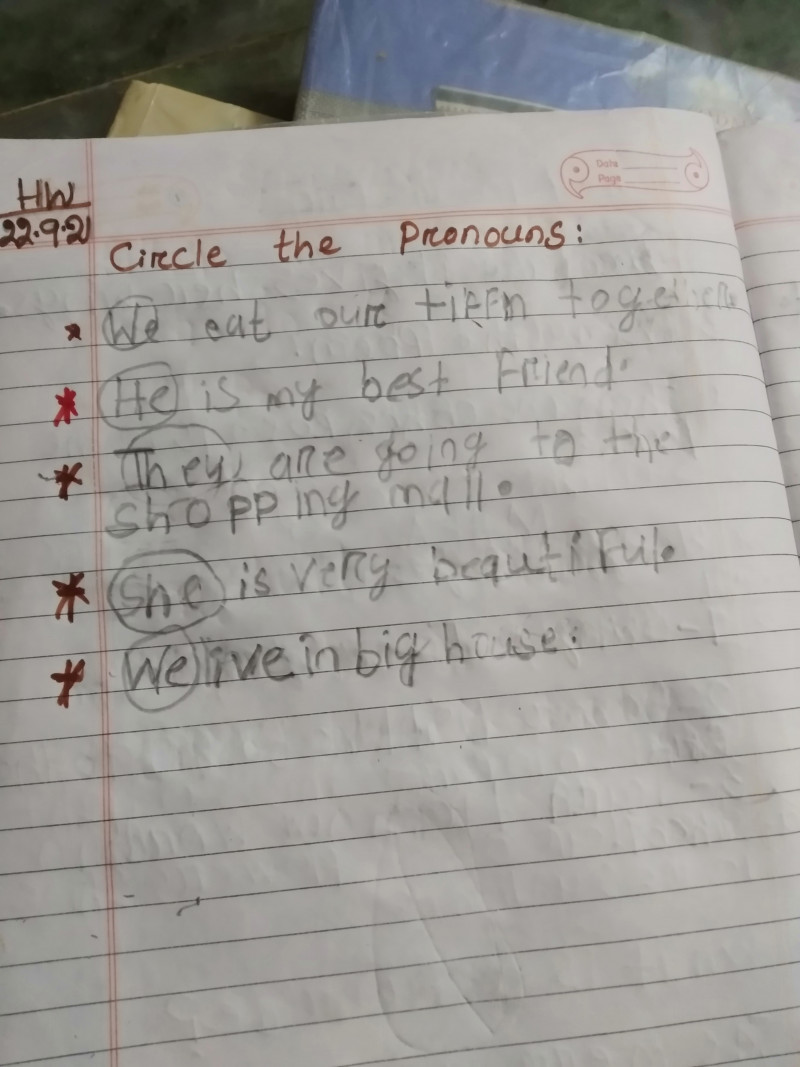 Date
Page
HW
22.9.21
Circle the Pronouns:
* We eat our tiffin together
* He is my best Friend.
* They are going to the
shopping mall.
* She is very beautiful.
* We live in big house.